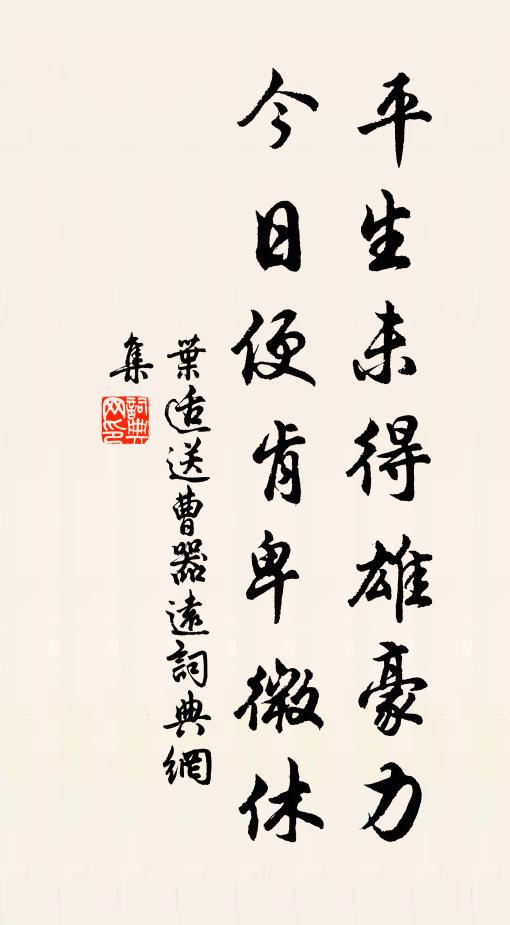 平生未得雄豪力
今日便肯卑微休
葉适送曹器遠詞典網
集
詞典
网印